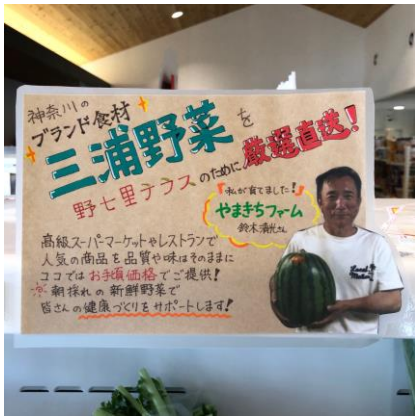 神奈川の
ブランド食材
三浦野菜を
野七里テラスのために厳選直送!
「私が育てました!」
やまきちファーム
鈴木清光さん
高級スーパーマーケットやレストランで
人気の商品を品質や味はそのままに
ココではお手頃価格でご提供!
朝採れの新鮮野菜で
皆さんの健康づくりをサポートします!